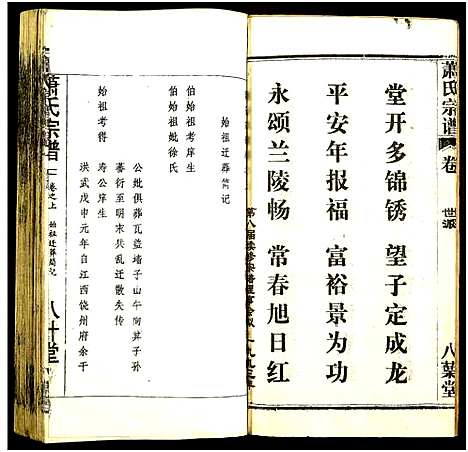 蕭氏宗谱
卷
世派
八葉堂
堂开多锦锈 望子定成龙
平安年报福 富裕景为功
永颂兰陵畅 常春旭日红
第八届续修宗谱理事会
始祖迁葬简记
伯始祖考岸生
伯始祖妣徐氏
公妣俱葬瓦盆墙子山午向其子孙
蕃衍至明末兵乱迁散失传
始祖考得
寿公岸生
洪武戊申元年自江西饶州府余干
蕭氏宗譜
卷之上
始祖迁葬简记
八叶堂